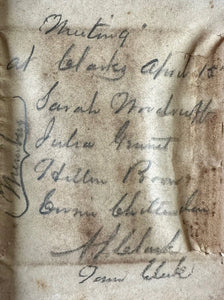 Meeting
at Clarks April 15
Sarah Woodruff
Julia
Hillen
Emma Chittenden
A L Clark
Town Clerk